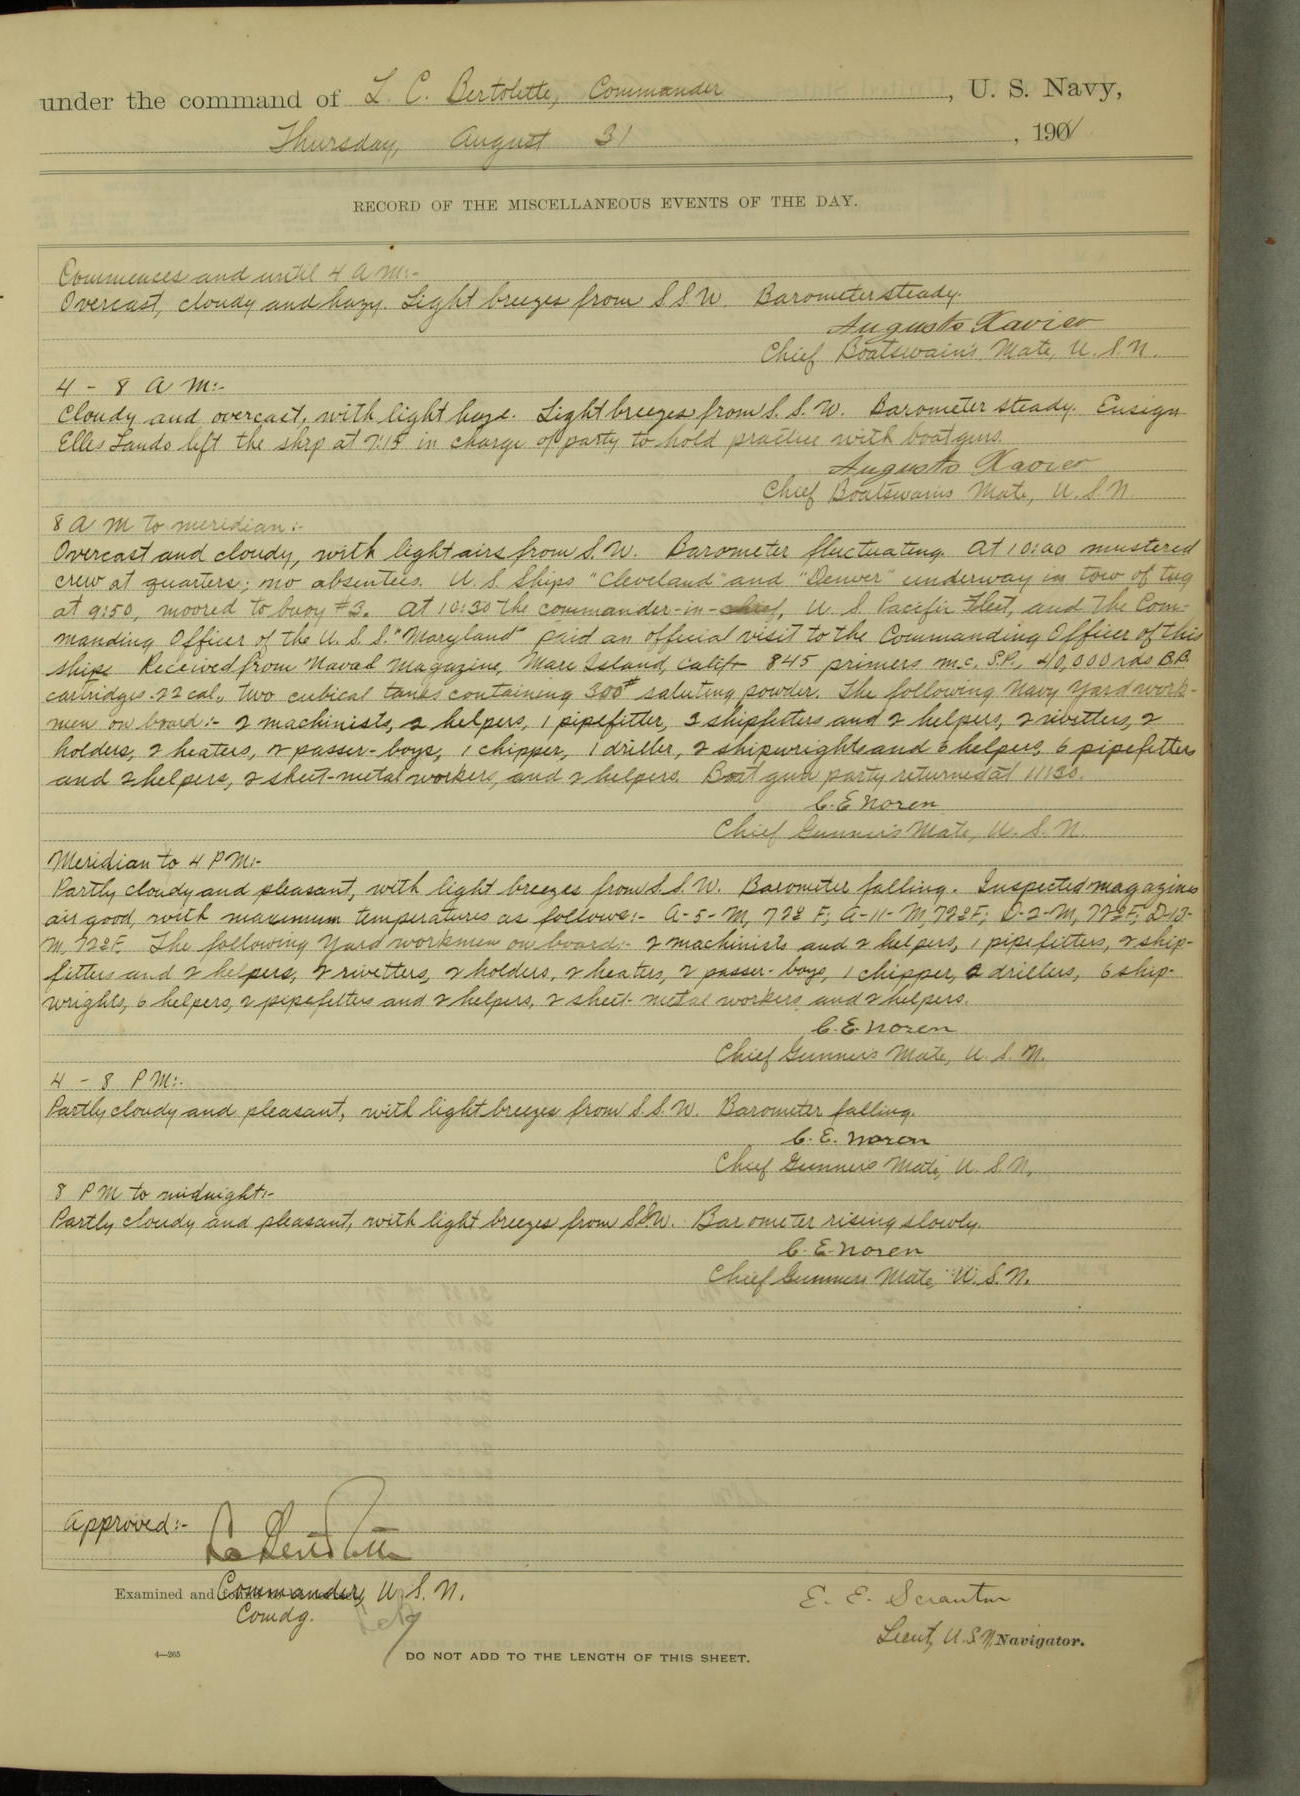 under the command of L C. Bertolette, Commander, U. S. Navy,
Thursday, August 31, 190
RECORD OF THE MISCELLANEOUS EVENTS OF THE DAY.
Commences and until 4 A M:-
Overcast, cloudy and hazy. Light breezes from S S W. Barometer steady.
Augusto Xavier
Chief Boatswain's Mate, U. S. N.
4 - 8 A M:-
Cloudy and overcast, with light haze. Light breezes from S. S. W. Barometer steady. Ensign
Ellis Lando left the ship at 7:15 in charge of party to hold practice with boat guns.
Augusto Xavier
Chief Boatswains Mate, U. S. N.
8 A M to meridian:-
Overcast and cloudy, with light airs from S. W. Barometer fluctuating. At 10:00 mustered
crew at quarters; no absentees. U. S. Ships "Cleveland" and "Denver" underway in tow of tug
at 9:50, moored to buoy #3. At 10:30 the commander-in-chief, U. S. Pacific Fleet, and The Com-
manding Officer of the U. S. S. "Maryland" paid an official visit to the Commanding Officer of this
ship. Received from Naval Magazine, Mare Island, Calif. 845 primers m.c. S.P., 40,000 rds B.B.
cartridges .22 cal., two cubical tanks containing 300# saluting powder. The following Navy Yard work-
men on board:- 2 machinists, 2 helpers, 1 pipefitter, 3 shipfitters and 2 helpers, 2 rivetters, 2
holders, 2 heaters, 2 passer-boys, 1 chipper, 1 driller, 2 shipwrights and 6 helpers, 6 pipefitters
and 2 helpers, 2 sheet-metal workers, and 2 helpers. Boat gun party returned at 11:30.
C. E. Noren
Chief Gunner's Mate, U. S. N.
Meridian to 4 P M:-
Partly cloudy and pleasant, with light breezes from S. S. W. Barometer falling. Inspected magazines
air good, with maximum temperatures as follows:- A-5-M, 72° F; A-11-M, 72° F; D-2-M, 72° F; D-13-
M, 72° F. The following Yard workmen on board:- 2 machinists and 2 helpers, 1 pipefitters, 2 ship-
fitters and 2 helpers, 2 rivetters, 2 holders, 2 heaters, 2 passer-boys, 1 chipper, 2 drillers, 6 ship-
wrights, 6 helpers, 2 pipefitters and 2 helpers, 2 sheet-metal workers and 2 helpers.
C. E. Noren
Chief Gunner's Mate, U. S. N.
4 - 8 P M:-
Partly cloudy and pleasant, with light breezes from S. S. W. Barometer falling.
C. E. Noren
Chief Gunners Mate, U. S. N.
8 P M to midnight:-
Partly cloudy and pleasant, with light breezes from S.S.W. Barometer rising slowly.
C. E. Noren
Chief Gunners Mate, U. S. N.
Approved:-
L C Bertolette
Examined and Commander, U. S. N.
Comdg.
E. E. Scranton
Lieut, U. S. N. Navigator.
4—265
DO NOT ADD TO THE LENGTH OF THIS SHEET.